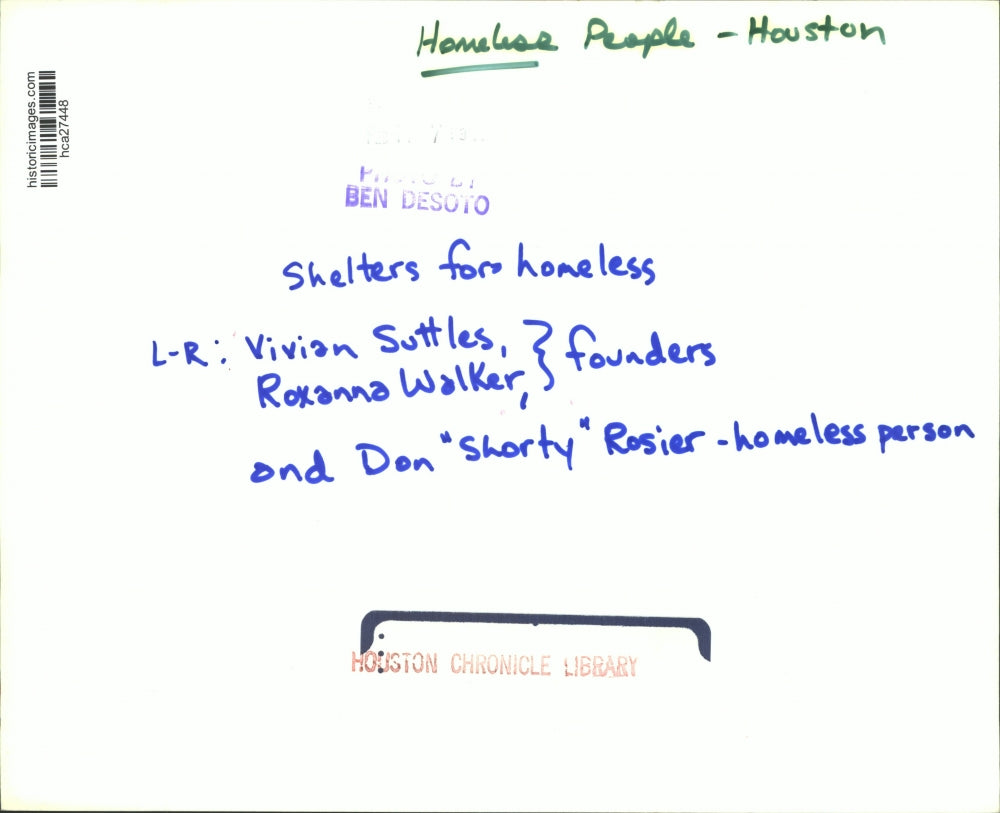 Homeless People - Houston
historicimages.com
hca27448
PHOTO BY
BEN DESOTO
Shelters for homeless
L-R: Vivian Suttles, } founders
Roxanna Walker,
and Don "Shorty" Rosier - homeless person
HOUSTON CHRONICLE LIBRARY